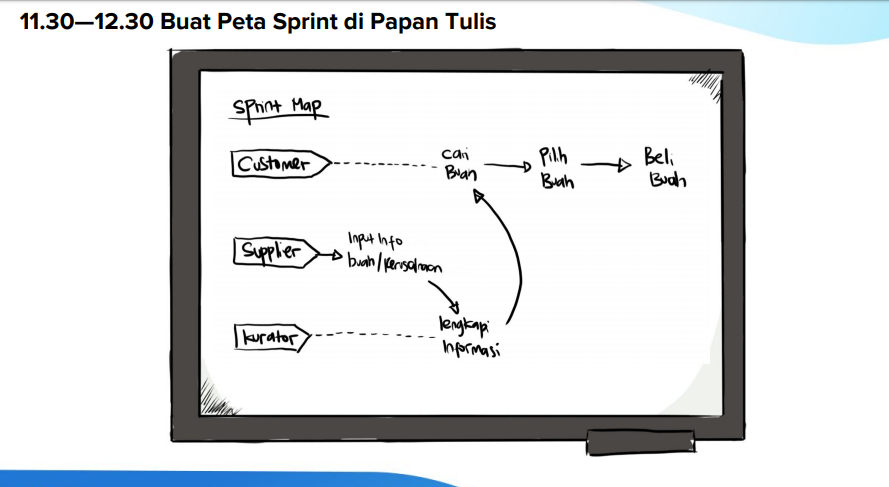 11.30—12.30 Buat Peta Sprint di Papan Tulis
Sprint Map
Customer
Cari
Buah
Pilih
Buah
Beli
Buah
Supplier
Input Info
buah/
kurator
lengkapi
Informasi